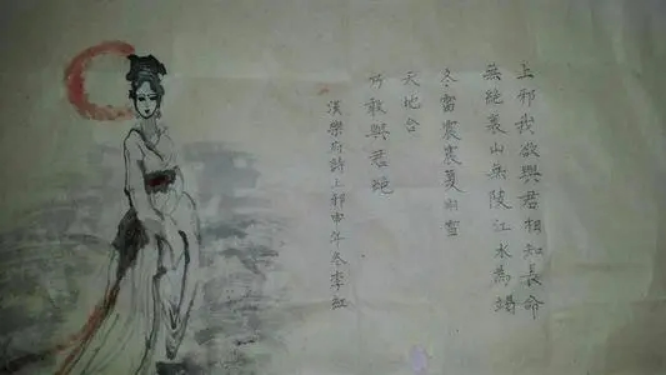 上邪我欲與君相知長命
無絕衰山無陵江水為竭
冬雷震震夏雨雪
天地合
乃敢與君絕
漢樂府詩上邪申年冬李紅